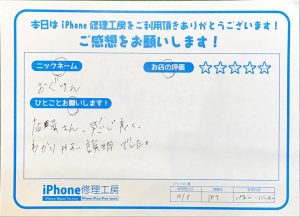 本日は iPhone 修理工房をご利用頂きありがとうございます!
ご感想をお願いします!
ニックネーム
お店の評価 ☆☆☆☆☆
おぐりん
ひとことお願いします!
店員さん、感じ良く、
わかりやすい説明でした。
iPhone修理工房